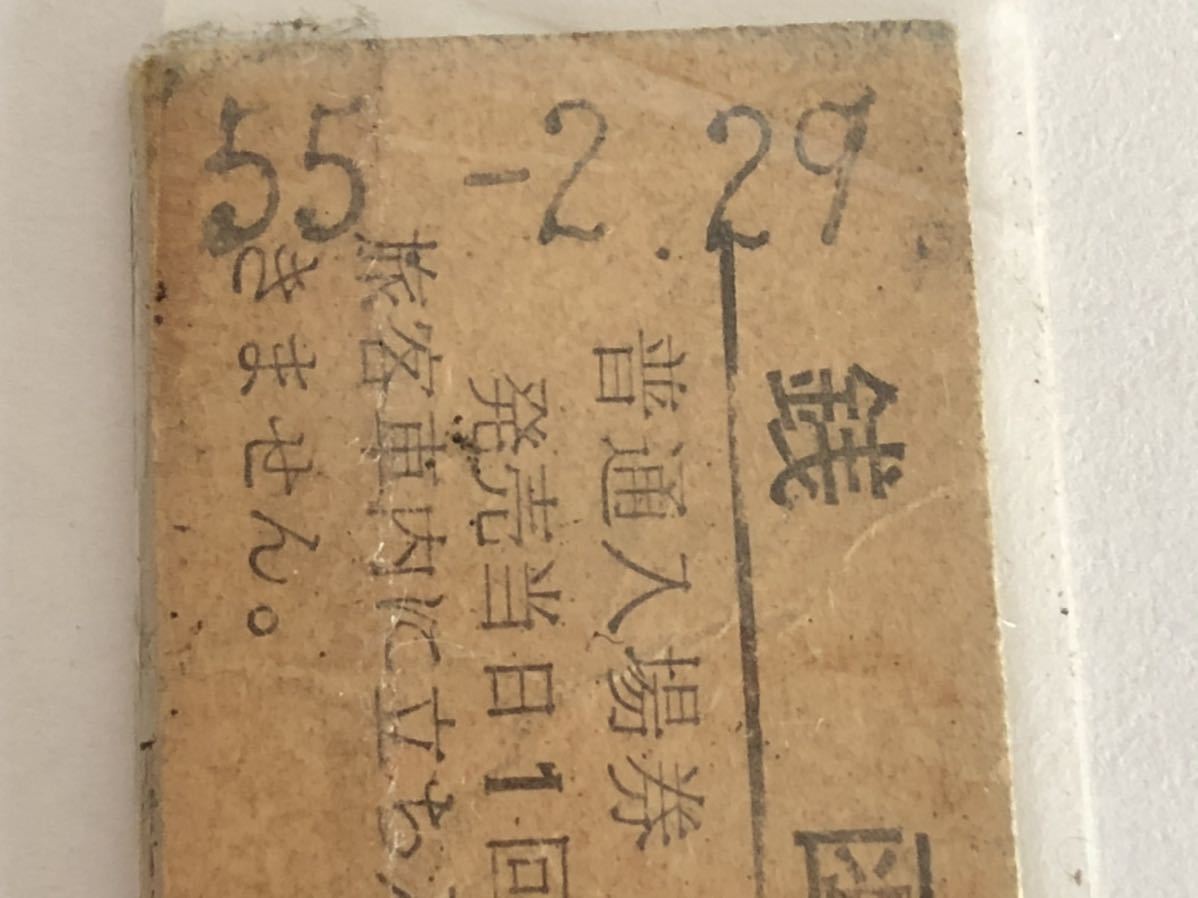 55-2.29
銭
普通入場券
発売当日1回
旅客車内に立ち
きません。